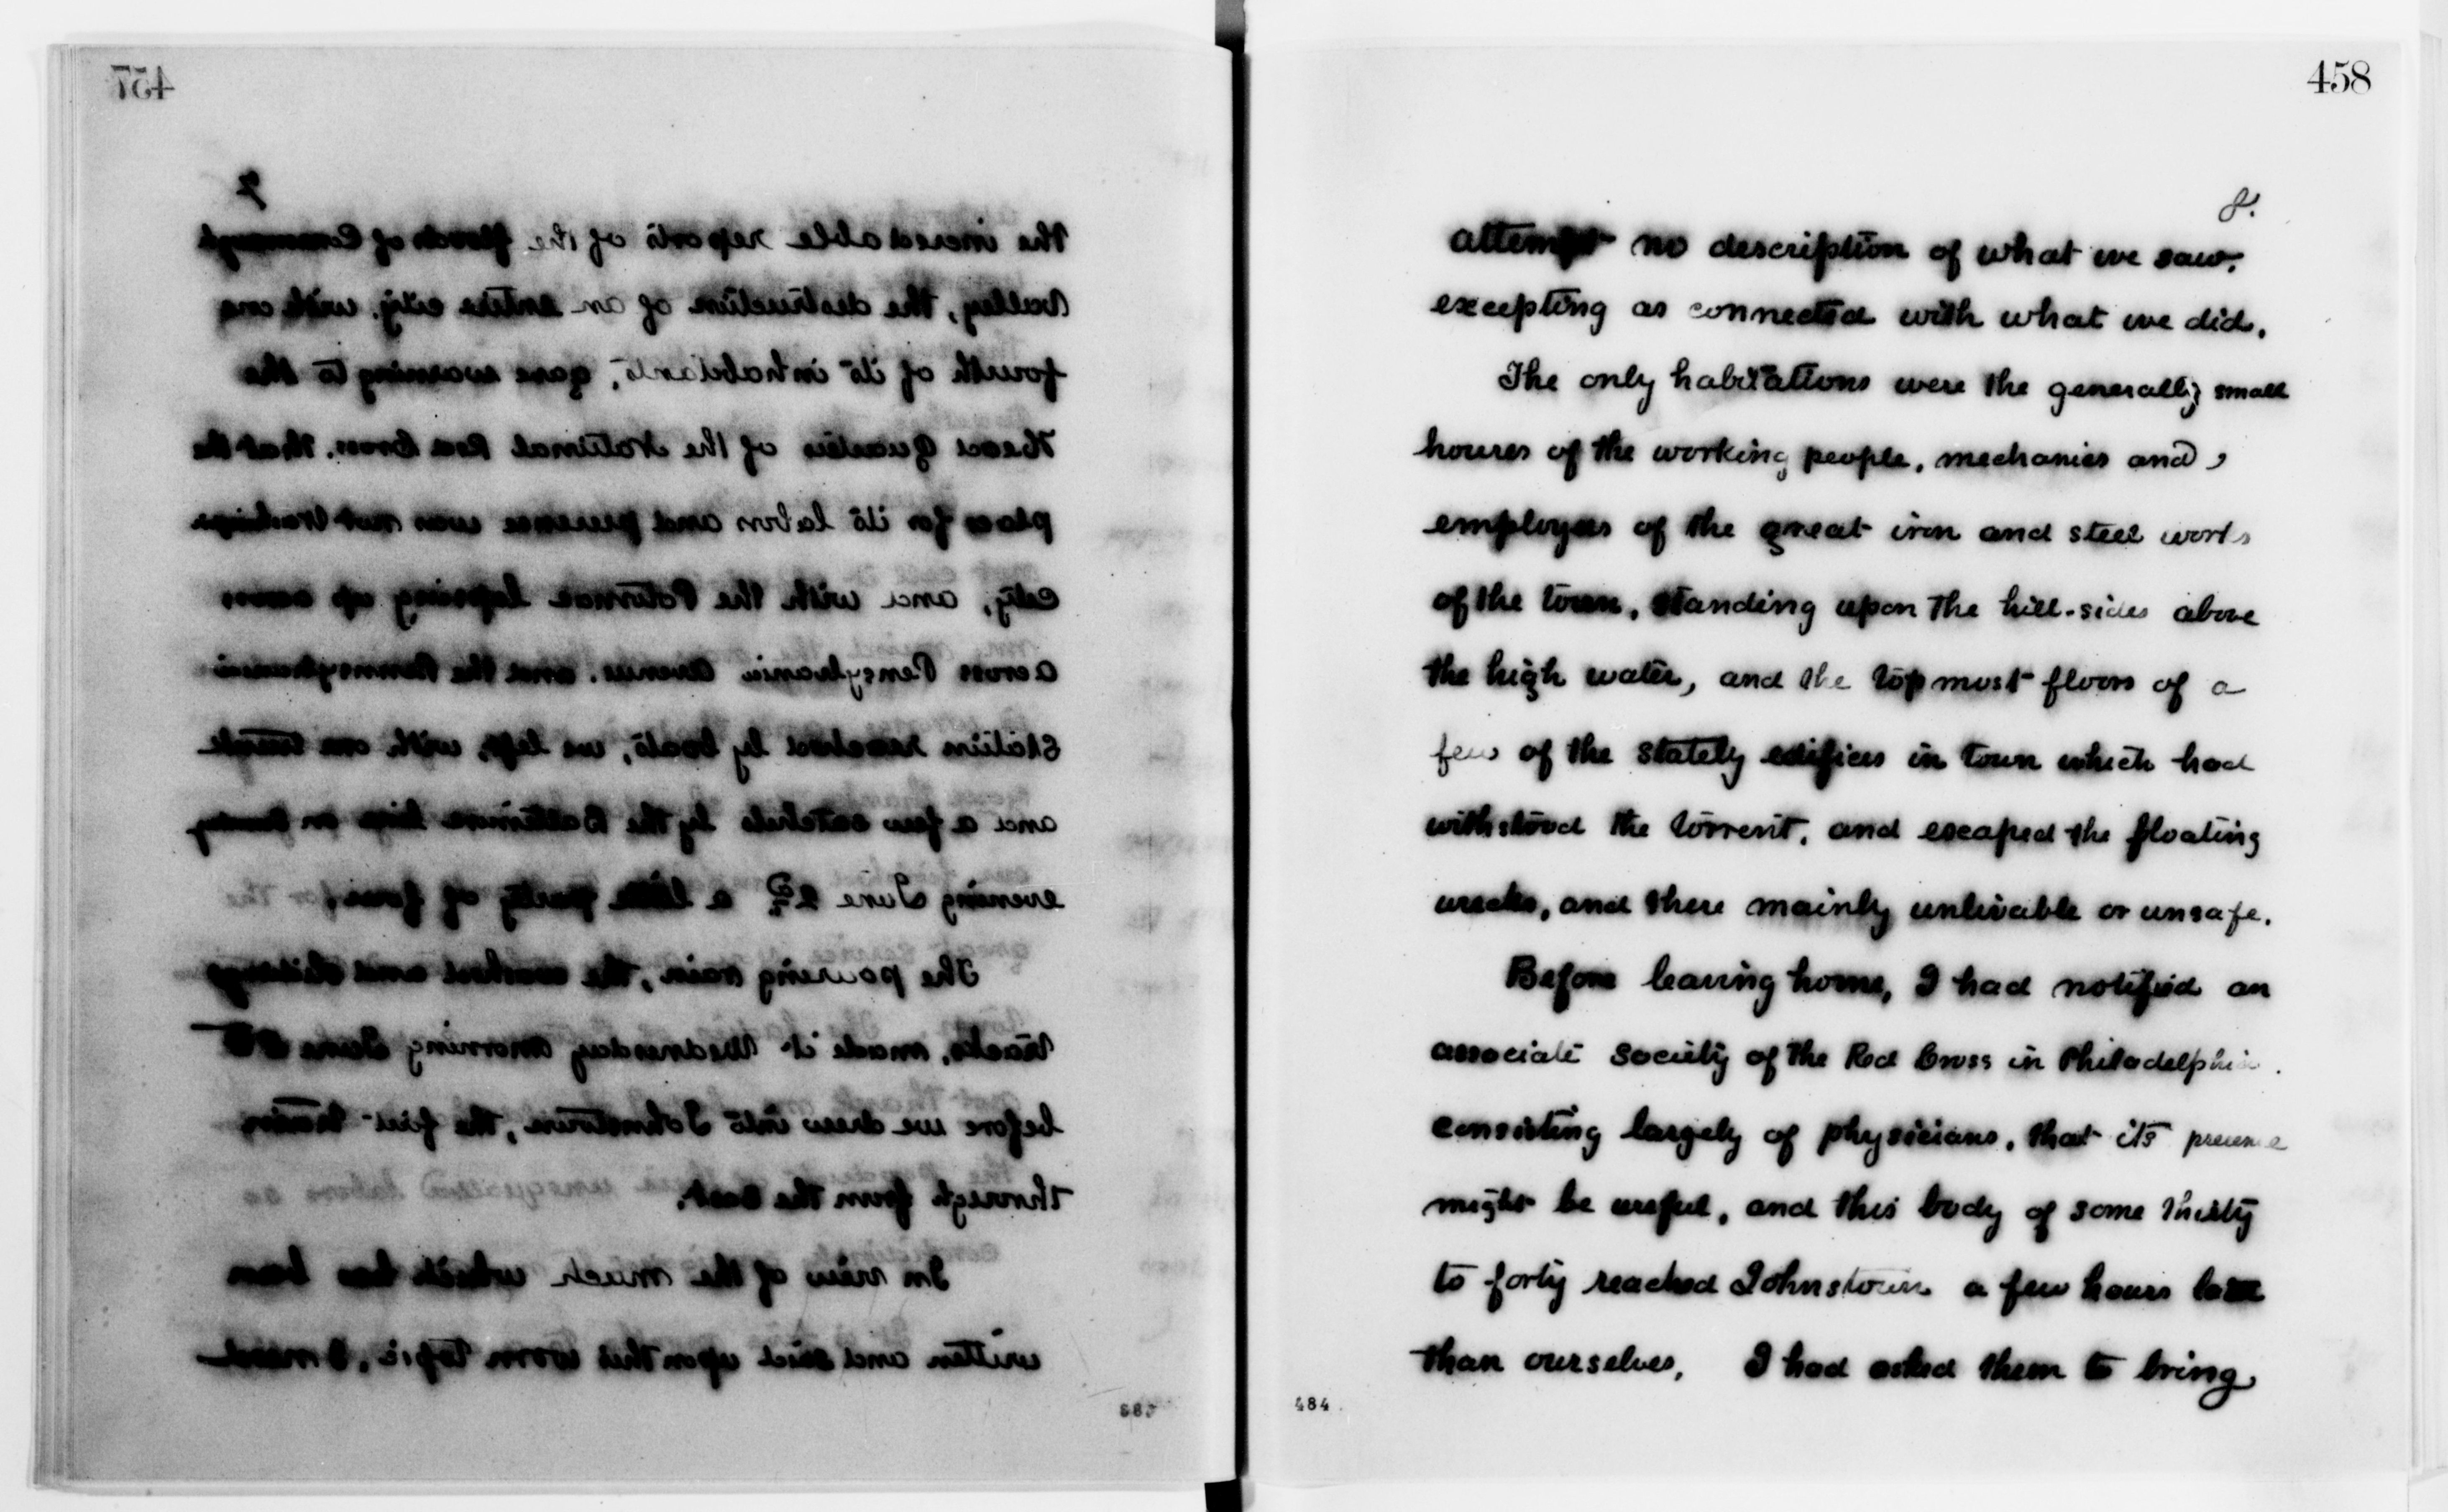 457
7
the incredable reports of the floods of Conemaugh
Valley, the destruction of an entire city, with one
fourth of its inhabitants, gave warning to the
Head Quarters of the National Red Cross, that the
place for its labor and presence was not Washington
city, and with the Potomac lapping up
across Pensylvania Avenue, and the Pennsylvania
Station reached by boats, we left, with one
and a few satchels by the Baltimore
evening June 2d a little party of four
The pouring rain, the washed and
tracks, made it Wednesday morning June 5th
before we drew into Johnstown, the first train
through from the East.
In view of the much which has been
written and said upon this worn topic, I
458
8.
attempt no description of what we saw,
excepting as connected with what we did.
The only habitations were the generally small
houses of the working people, mechanics and
employees of the great iron and steel works
of the town, standing upon the hill-sides above
the high water, and the top most floors of a
few of the stately edifices in town which had
withstood the torrent, and escaped the floating
wrecks, and these mainly unlivable or unsafe.
Before leaving home, I had notified an
associate society of the Red Cross in Philadelphia.
consisting largely of physicians, that its presence
might be useful, and this body of some thirty
to forty reached Johnstown a few hours later
than ourselves, I had asked them to bring
484